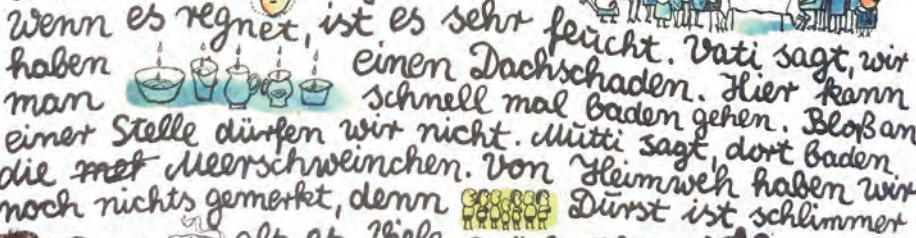 Wenn es regnet, ist es sehr feucht. Vati sagt, wir
haben einen Dachschaden. Hier kann
man schnell mal baden gehen. Bloß an
einer Stelle dürfen wir nicht. Mutti sagt, dort baden
die Meerschweinchen. Von Heimweh haben wir
noch nichts gemerkt, denn Durst ist schlimmer